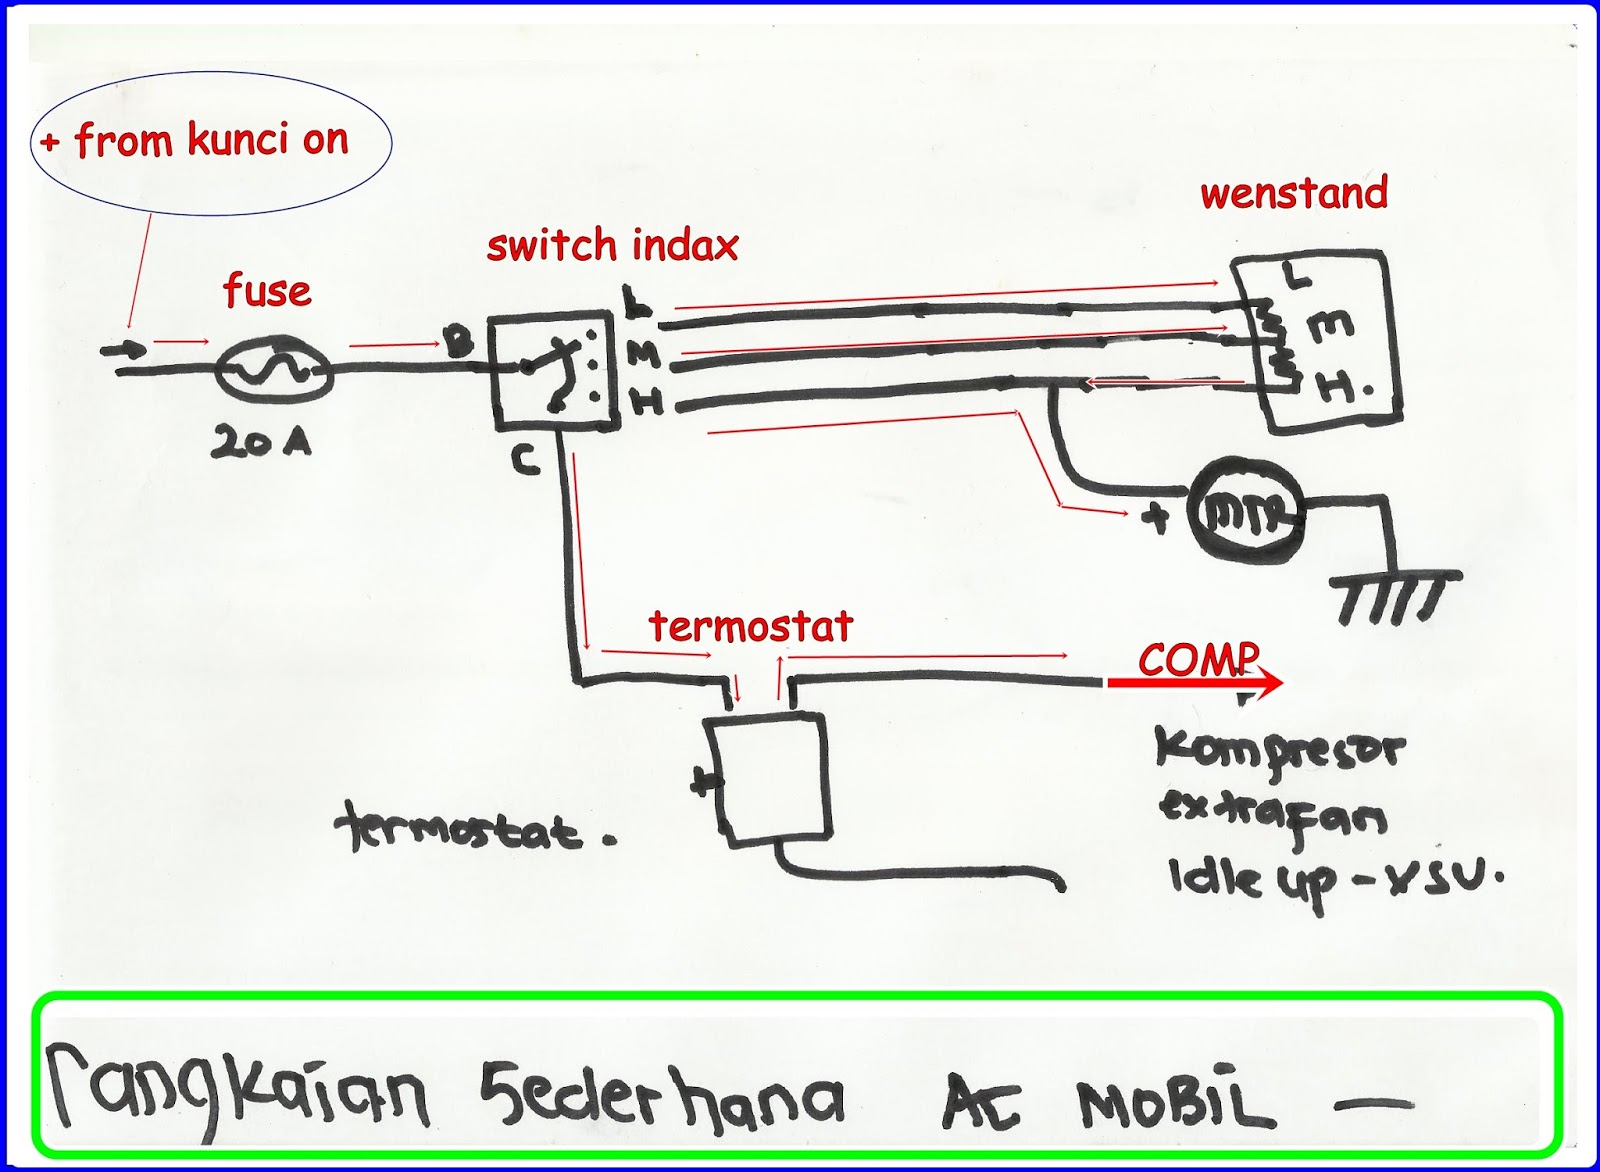 + from kunci on
wenstand
switch indax
fuse
L
L
M
M
B
H
H.
20 A
C
+
MTR
termostat
COMP
Kompresor
+
extrafan
termostat.
Idle up - VSU.
rangkaian Sederhana AC MOBIL —